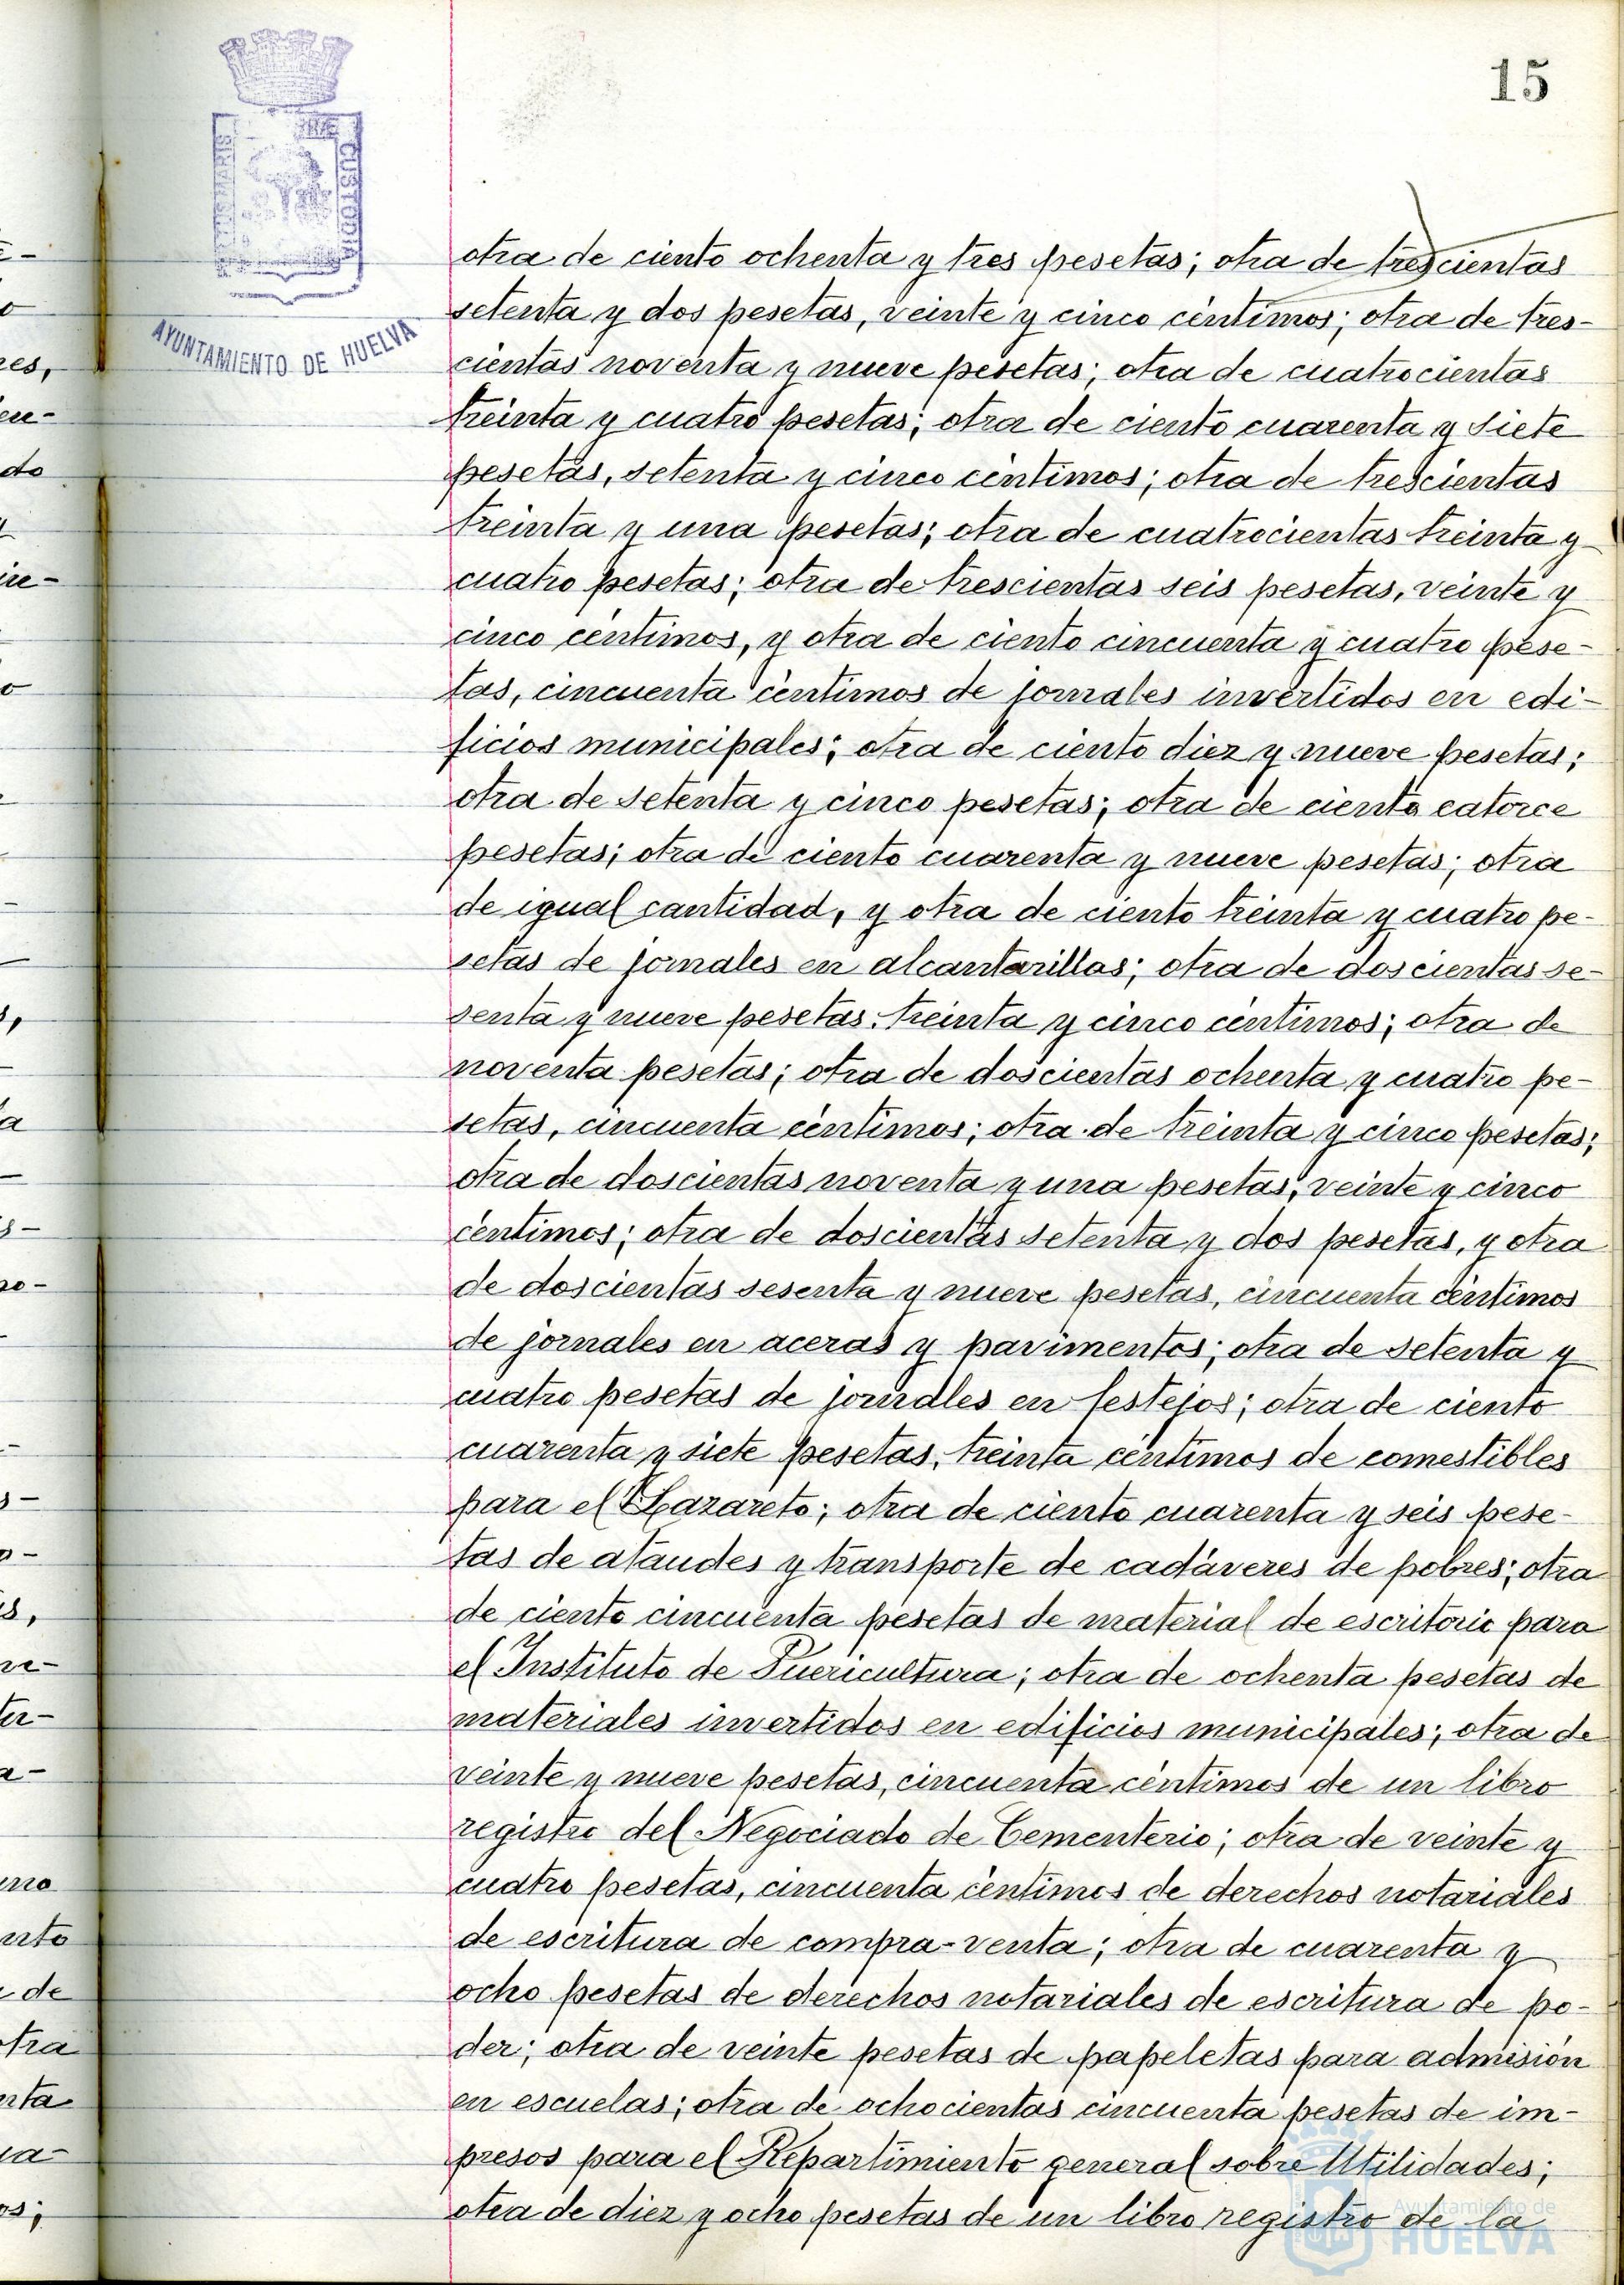 15
CUSTODIA
AYUNTAMIENTO DE HUELVA
otra de ciento ochenta y tres pesetas; otra de trescientas
setenta y dos pesetas, veinte y cinco céntimos; otra de tres-
cientas noventa y nueve pesetas; otra de cuatrocientas
treinta y cuatro pesetas; otra de ciento cuarenta y siete
pesetas, setenta y cinco céntimos; otra de trescientas
treinta y una pesetas; otra de cuatrocientas treinta y
cuatro pesetas; otra de trescientas seis pesetas, veinte y
cinco céntimos, y otra de ciento cincuenta y cuatro pese-
tas, cincuenta céntimos de jornales invertidos en edi-
ficios municipales; otra de ciento diez y nueve pesetas;
otra de setenta y cinco pesetas; otra de ciento catorce
pesetas; otra de ciento cuarenta y nueve pesetas; otra
de igual cantidad, y otra de ciento treinta y cuatro pe-
setas de jornales en alcantarillas; otra de doscientas se-
senta y nueve pesetas, treinta y cinco céntimos; otra de
noventa pesetas; otra de doscientas ochenta y cuatro pe-
setas, cincuenta céntimos; otra de treinta y cinco pesetas;
otra de doscientas noventa y una pesetas, veinte y cinco
céntimos; otra de doscientas setenta y dos pesetas, y otra
de doscientas sesenta y nueve pesetas, cincuenta céntimos
de jornales en aceras y pavimentos; otra de setenta y
cuatro pesetas de jornales en festejos; otra de ciento
cuarenta y siete pesetas, treinta céntimos de comestibles
para el Lazareto; otra de ciento cuarenta y seis pese-
tas de ataudes y transporte de cadáveres de pobres; otra
de ciento cincuenta pesetas de material de escritorio para
el Instituto de Puericultura; otra de ochenta pesetas de
materiales invertidos en edificios municipales; otra de
veinte y nueve pesetas, cincuenta céntimos de un libro
registro del Negociado de Cementerio; otra de veinte y
cuatro pesetas, cincuenta céntimos de derechos notariales
de escritura de compra-venta; otra de cuarenta y
ocho pesetas de derechos notariales de escritura de po-
der; otra de veinte pesetas de papeletas para admisión
en escuelas; otra de ochocientas cincuenta pesetas de im-
presos para el Repartimiento general sobre Utilidades;
otra de diez y ocho pesetas de un libro registro de la
Ayuntamiento de
HUELVA